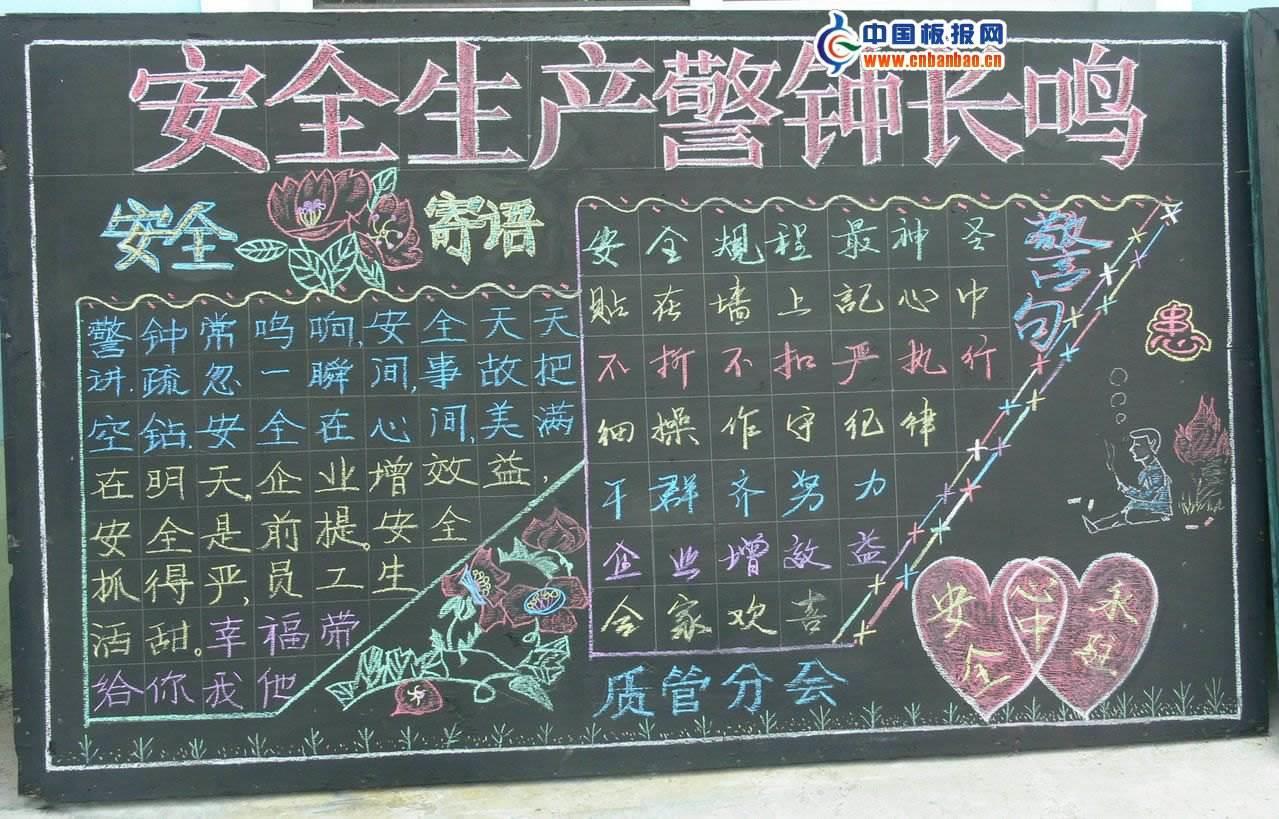 中国板报网
www.cnbanbao.cn
安全生产警钟长鸣
安全寄语
警钟常鸣响,安全天天
讲.疏忽一瞬间,事故把
空钻.安全在心间,美满
在明天。企业增效益,
安全是前提。安全
抓得严,员工生
活甜。幸福带
给你我他
警句
安全规程最神圣
贴在墙上記心中
不折不扣严执行
细操作守纪律
干群齐努力
企业增效益
合家欢喜
质管分会
患
安全
心中
永驻